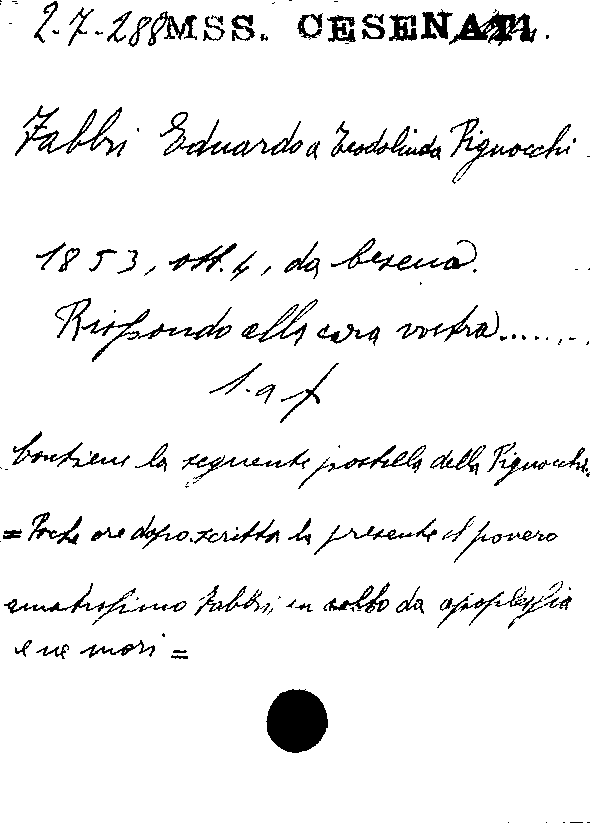 2-7-288 MSS. CESENATI.
Fabbri Eduardo a Teodolinda Pignocchi
1853, ott. 4, da Cesena.
Rispondo alla cara vostra.......
l. a f
Contiene la seguente postilla della Pignocchi.
= Poche ore dopo scritta la presente il povero
Fabbri, da apoplessia
e ne morì =